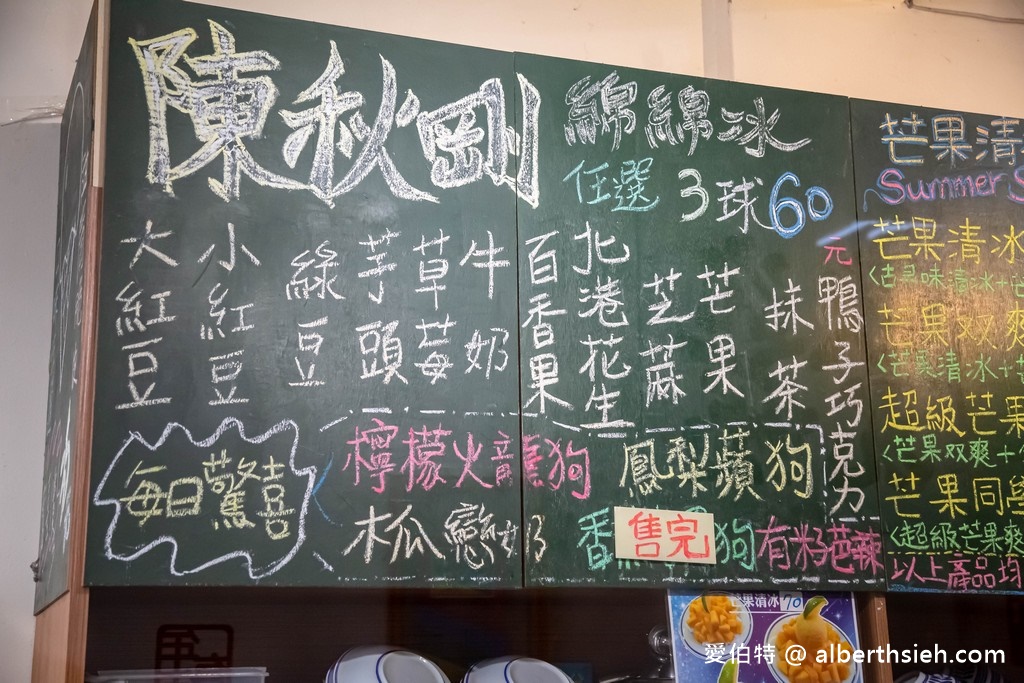 陳秋剛
綿綿冰
任選 3球60元
大紅豆
小紅豆
綠豆
芋頭
草莓
牛奶
百香果
北港花生
芝麻
芒果
抹茶
鴨子巧克力
每日驚喜
檸檬火龍狗
鳳梨蘋狗
木瓜戀奶
香 狗
售完
有籽芭辣
芒果清
Summer S
芒果清冰
芒果双爽
超級芒果
<芒果双爽+
芒果同學
<超級芒果爽
以上產品均
芒果清冰 70
愛伯特 @ alberthsieh.com